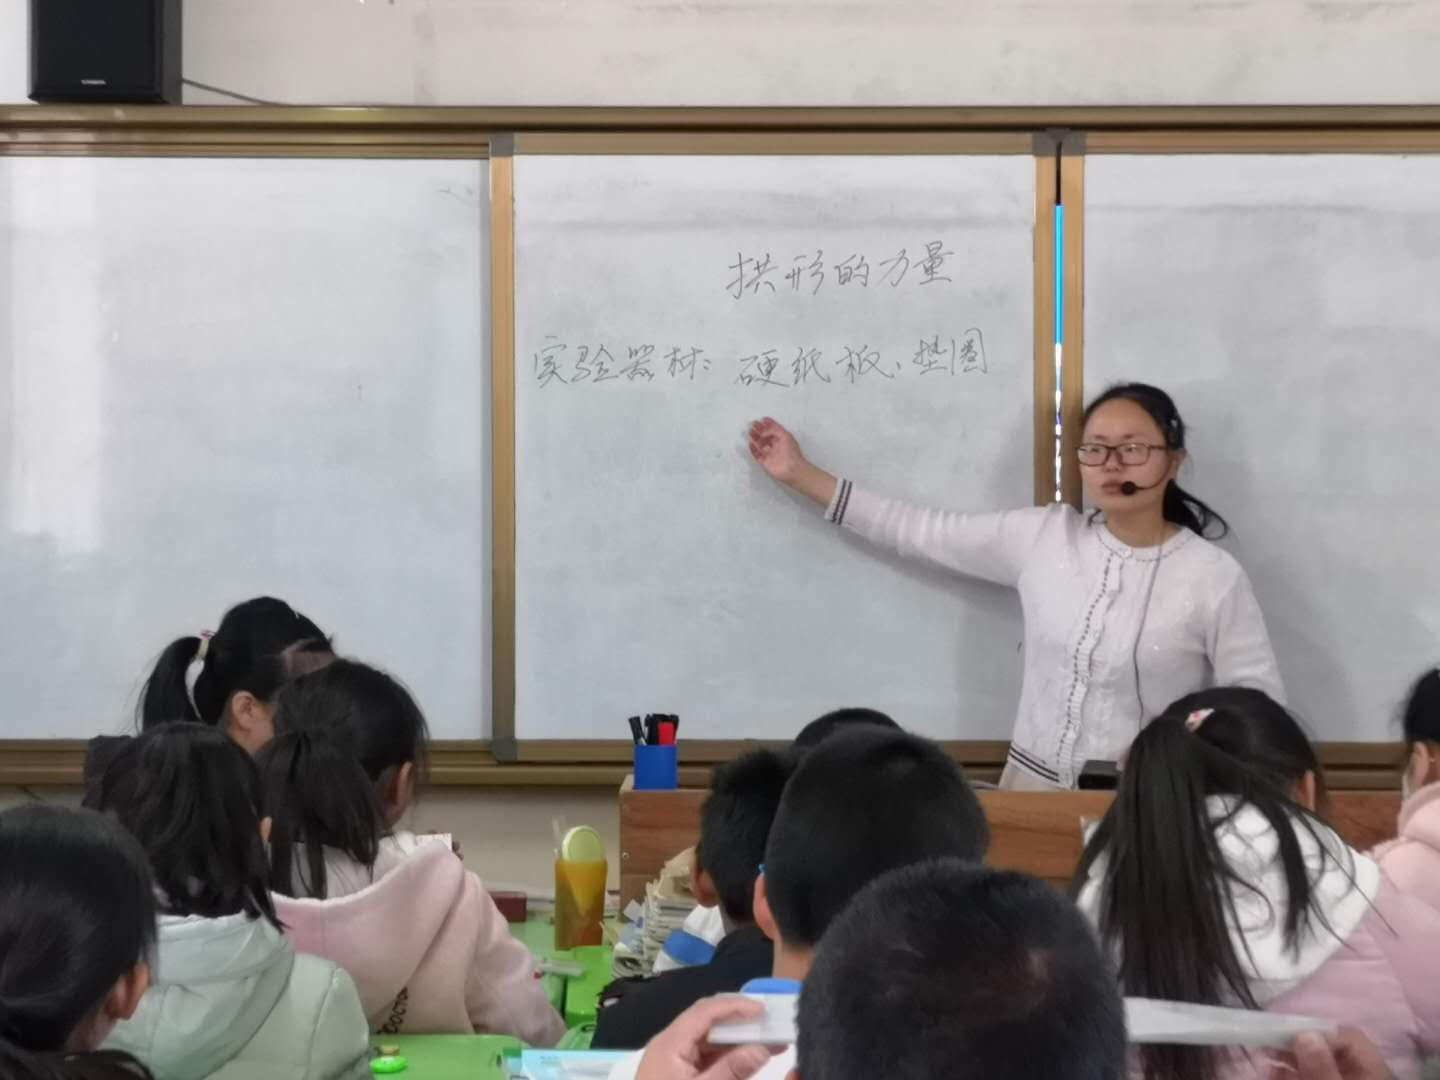 拱形的力量
实验器材：硬纸板、垫圈